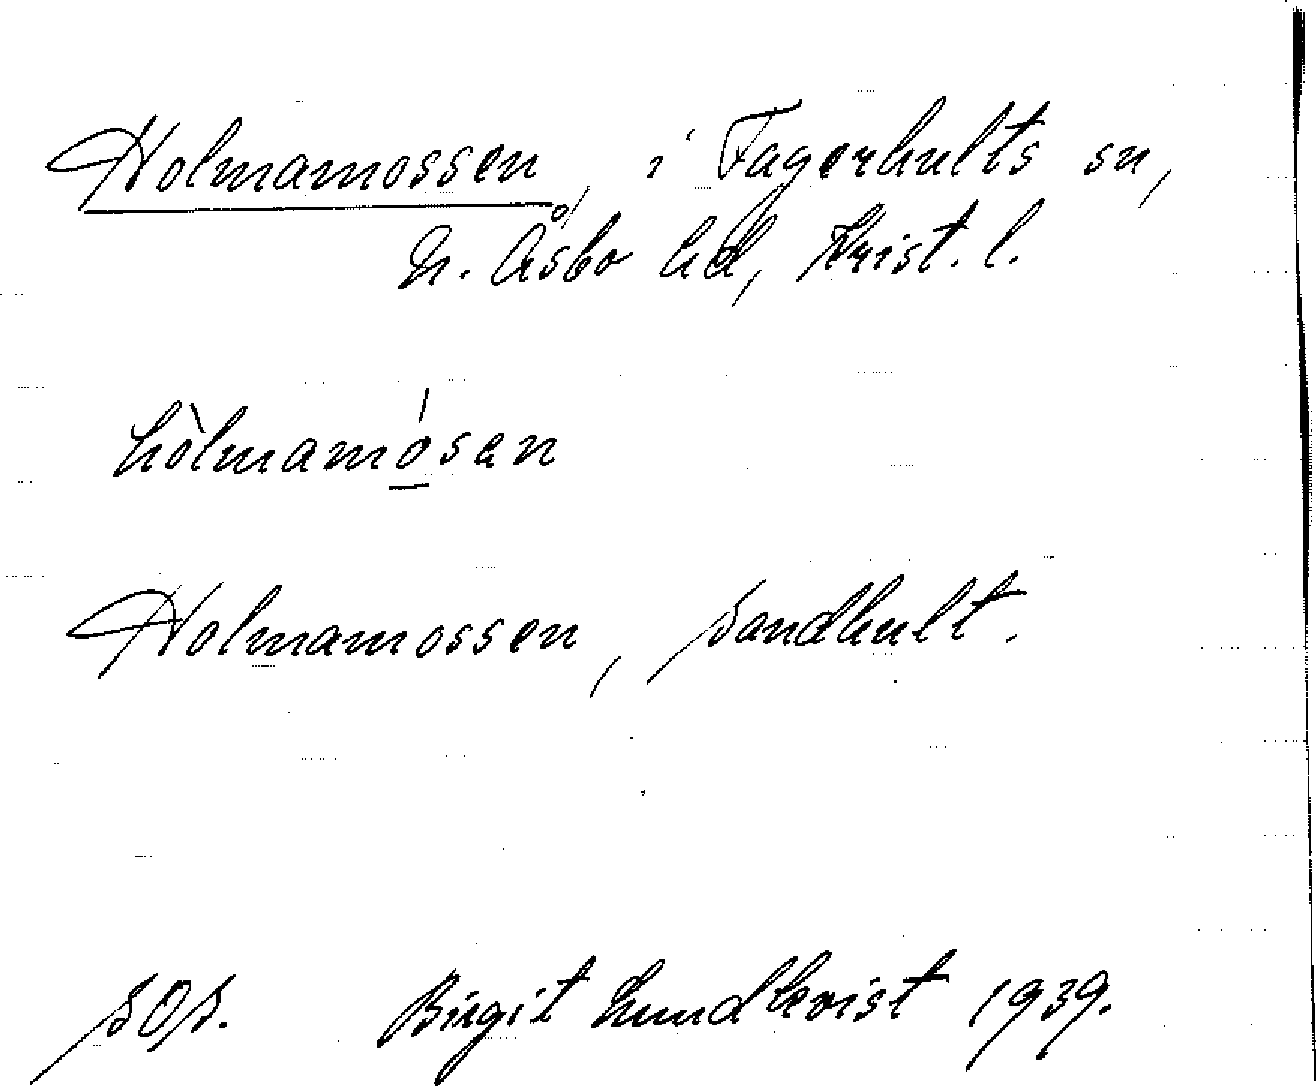 Holmamossen, i Fagerhults sn,
N. Åsbo hd, Krist. l.
hòlmamósan
Holmamossen, Sandhult.
SOS. Birgit Lundkvist 1939.